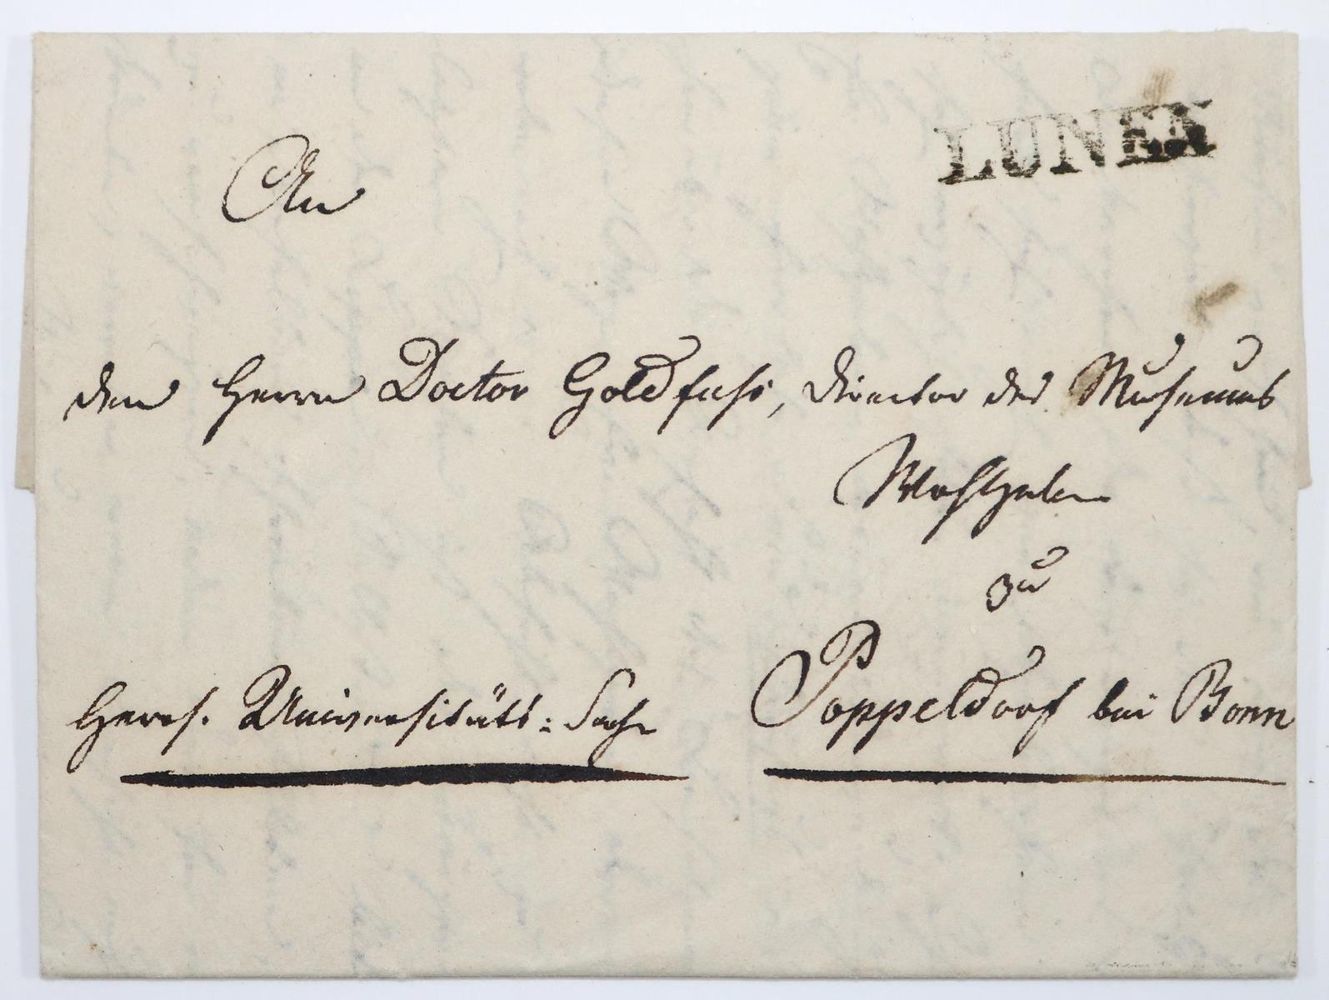 LUNEN
An
den Herrn Doctor Goldfuss, Director des Museums
Wohlgeboren
zu
Herrsch. Universitäts: Sache
Poppelsdorf bei Bonn